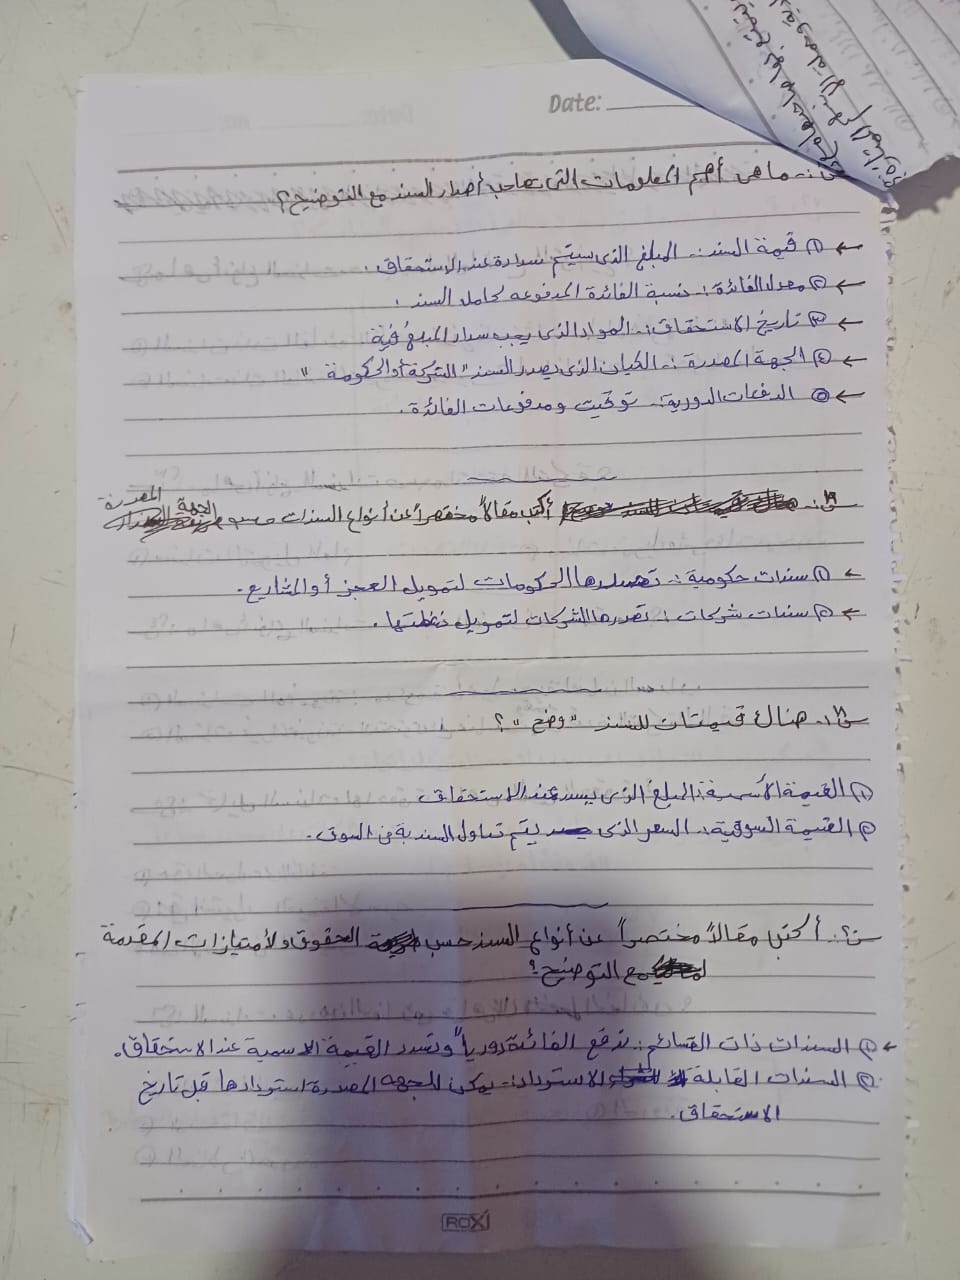 Date:
س:- ما هي أهم المعلومات التي تصاحب أصدار السند مع التوضيح؟
← ① قيمة السند:- المبلغ الذي سيتم سداده عند الاستحقاق.
← ② معدل الفائدة:- نسبة الفائدة المدفوعه لحامل السند.
← ③ تاريخ الاستحقاق:- الموعد الذي يجب سداد المبلغ فية
← ④ الجهة المصدرة:- الكيان الذي يصدر السند "الشركة أو الحكومة"
← ⑤ الدفعات الدورية:- توقيت ومدفوعات الفائدة.
س:- أكتب مقالاً مختصراً عن أنواع السندات حسب الجهة المصدرة
← ① سندات حكومية:- تصدرها الحكومات لتمويل العجز أو المشاريع.
← ② سندات شركات:- تصدرها الشركات لتمويل
س:- هناك قيمتان للسند "وضح"؟
① القيمة الأسمية: المبلغ الذي يسدد عند الاستحقاق
② القيمة السوقية:- السعر الذي يتم تداول السند بة في السوق.
س:- أكتب مقالاً مختصراً عن أنواع السند حسب الحقوق ولأمتيازات المقدمة
مع التوضيح؟
← ① السندات ذات القسائم:- تدفع الفائدة دورياً وتسدد القيمة الاسمية عند الاستحقاق.
② السندات القابلة الاسترداد:- يمكن للجهه المصدرة استردادها قبل تاريخ
الاستحقاق.
ROXI